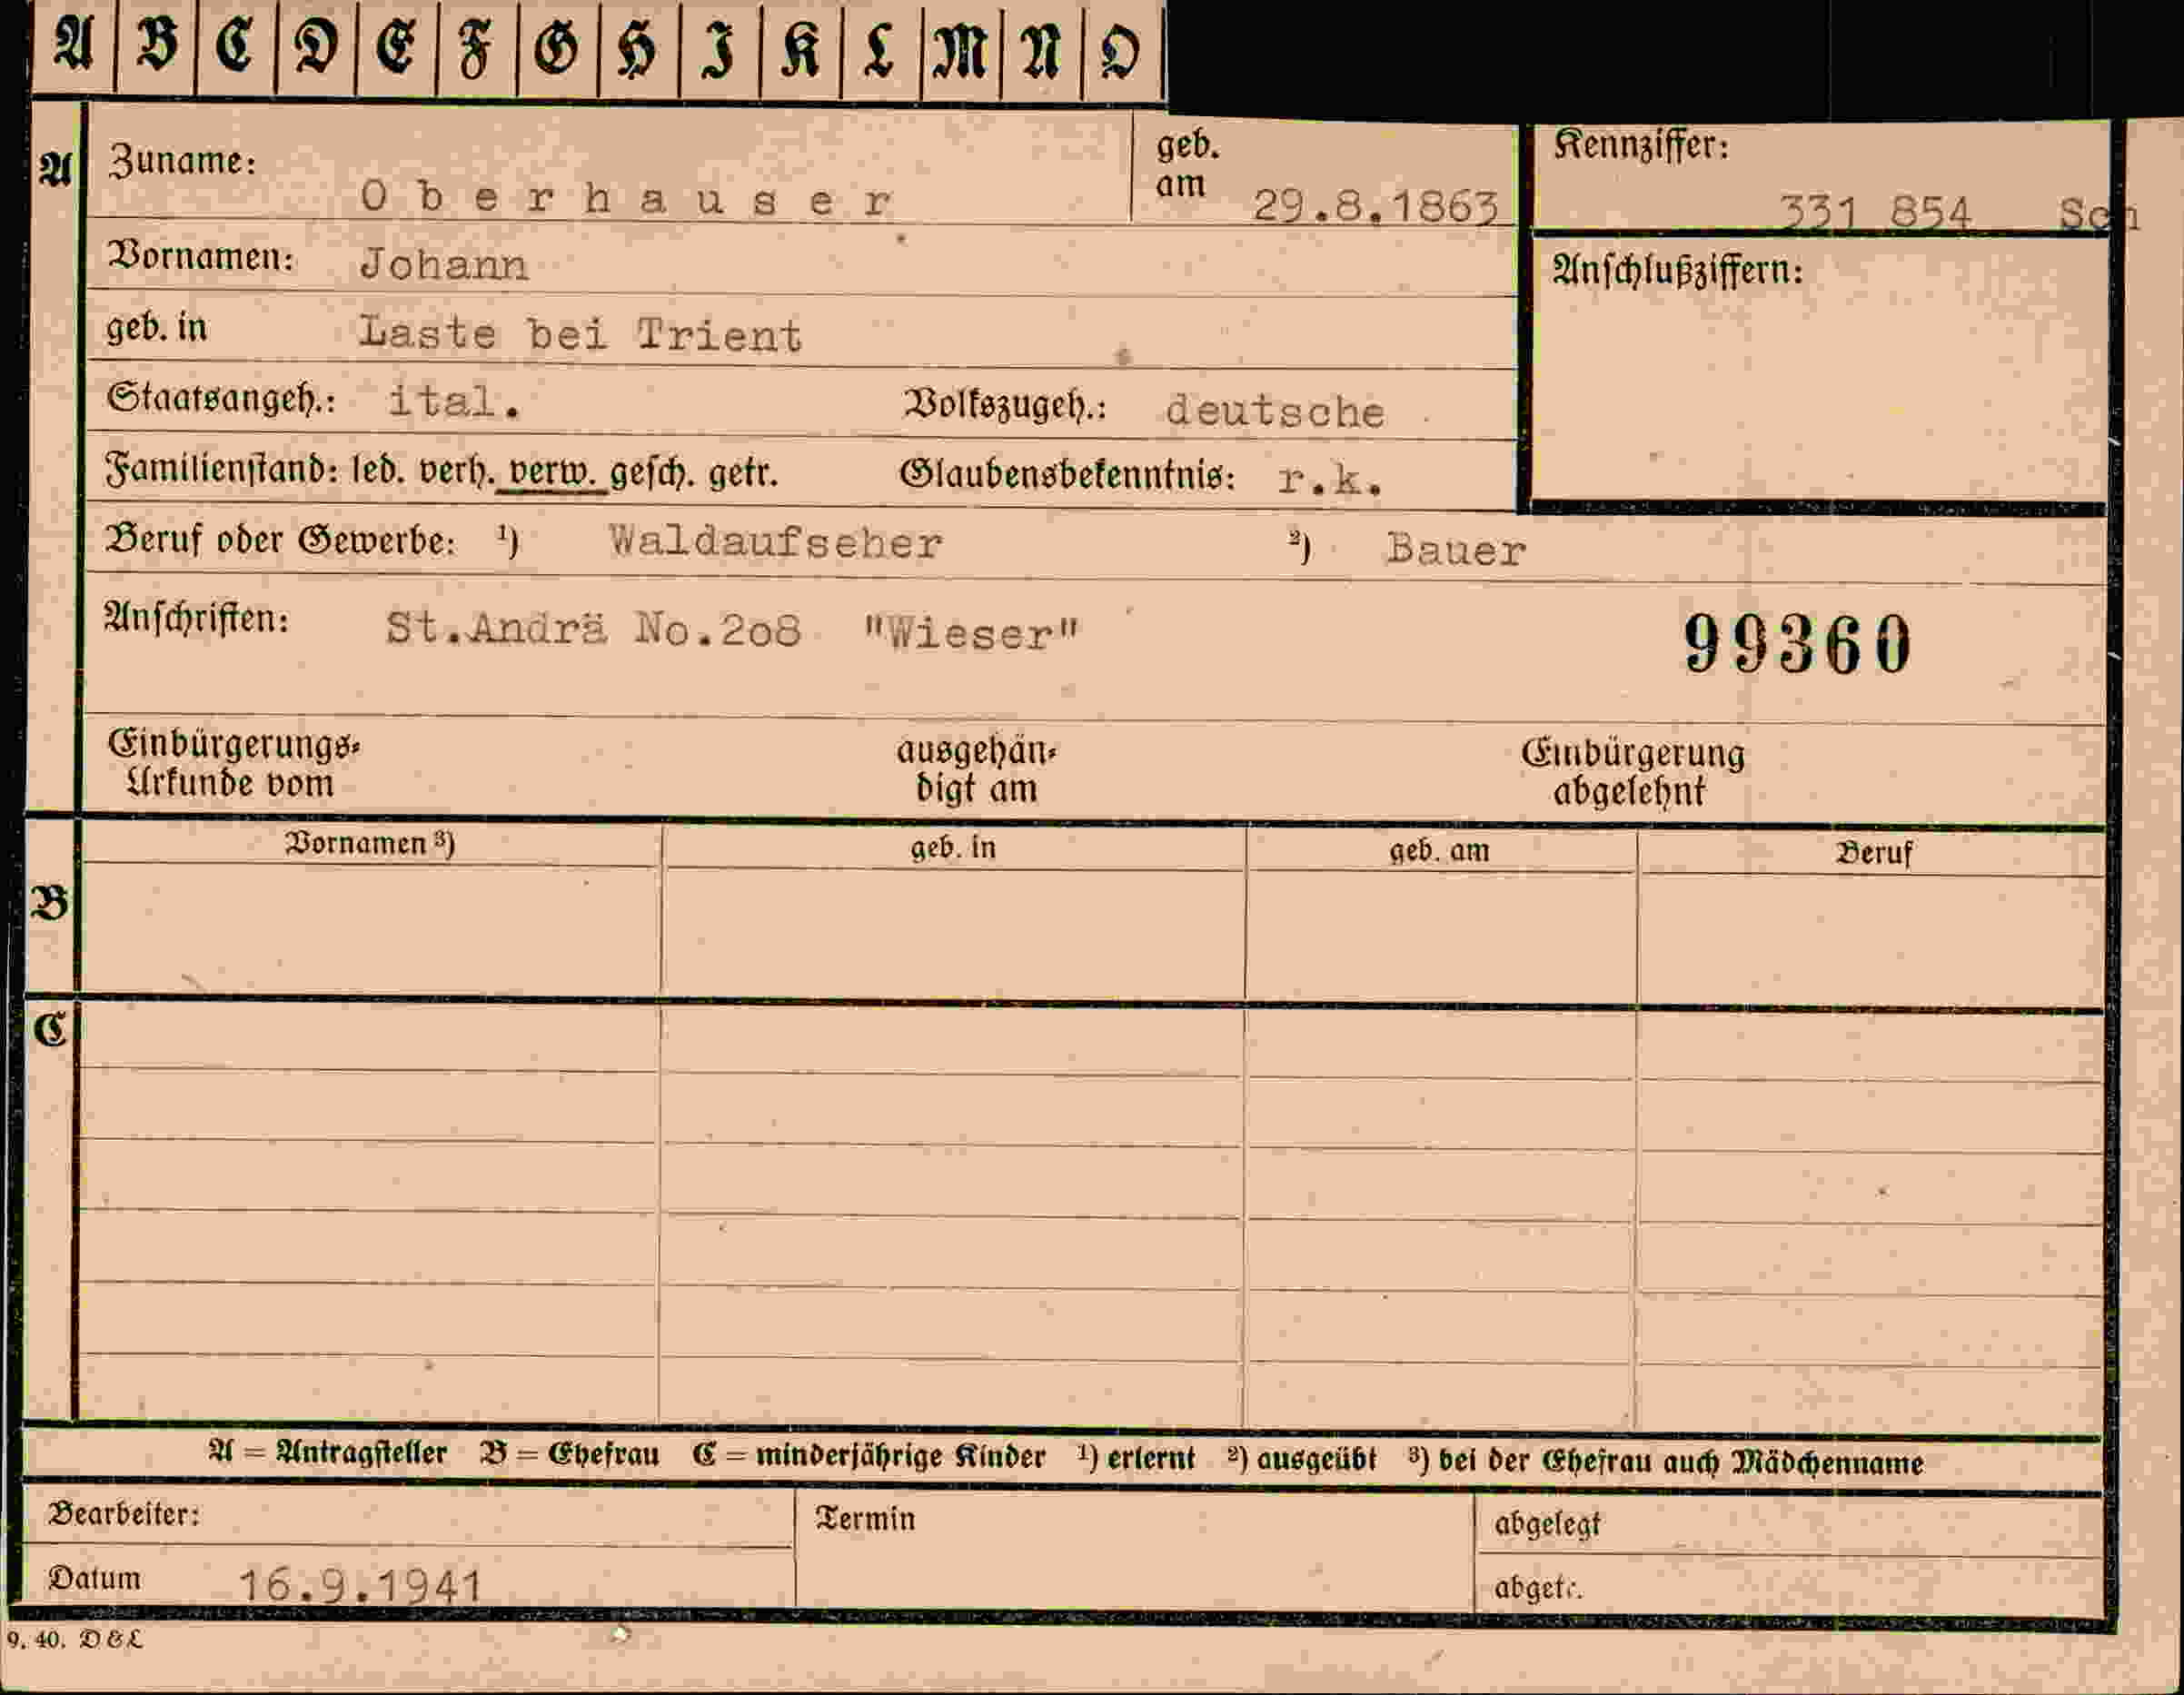 A B C D E F G H I K L M N O
A Zuname: Oberhauser geb. am 29.8.1863 Kennziffer: 331 854 Sch
Vornamen: Johann Anschlußziffern:
geb. in Laste bei Trient
Staatsangeh.: ital. Volkszugeh.: deutsche
Familienstand: led. verh. verw. gesch. getr. Glaubensbekenntnis: r.k.
Beruf oder Gewerbe: ¹) Waldaufseher ²) Bauer
Anschriften: St.Andrä No.2o8 "Wieser" 99360
Einbürgerungs- ausgehän- Einbürgerung
Urkunde vom digt am abgelehnt
Vornamen ³) geb. in geb. am Beruf
B
C
A = Antragsteller B = Ehefrau C = minderjährige Kinder ¹) erlernt ²) ausgeübt ³) bei der Ehefrau auch Mädchenname
Bearbeiter: Termin abgelegt
Datum 16.9.1941 abgetr.
9. 40. D & L